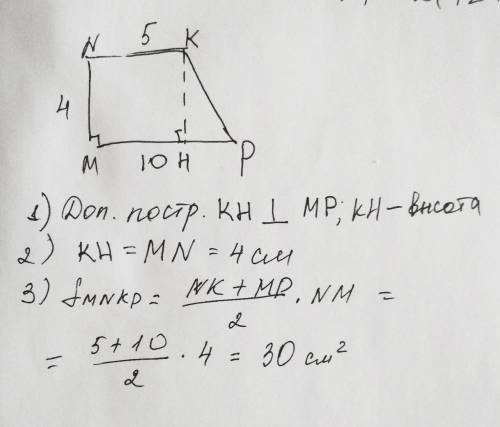 N 5 K
4
M 10 H P
1) Доп. постр. KH ⊥ MP; KH – высота
2) KH = MN = 4 см
3) S MNKP = (NK + MP)/2 · NM =
= (5 + 10)/2 · 4 = 30 см²